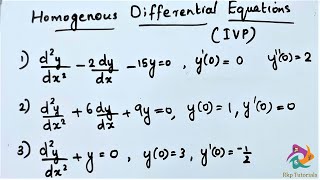 Homogenous Differential Equations
(IVP)
1) d²y/dx² - 2dy/dx - 15y=0 , y'(0)=0 y''(0)=2
2) d²y/dx² + 6dy/dx + 9y=0, y(0)=1, y'(0)=0
3) d²y/dx² + y=0 , y(0)=3, y'(0)=-1/2
Rkp Tutorials